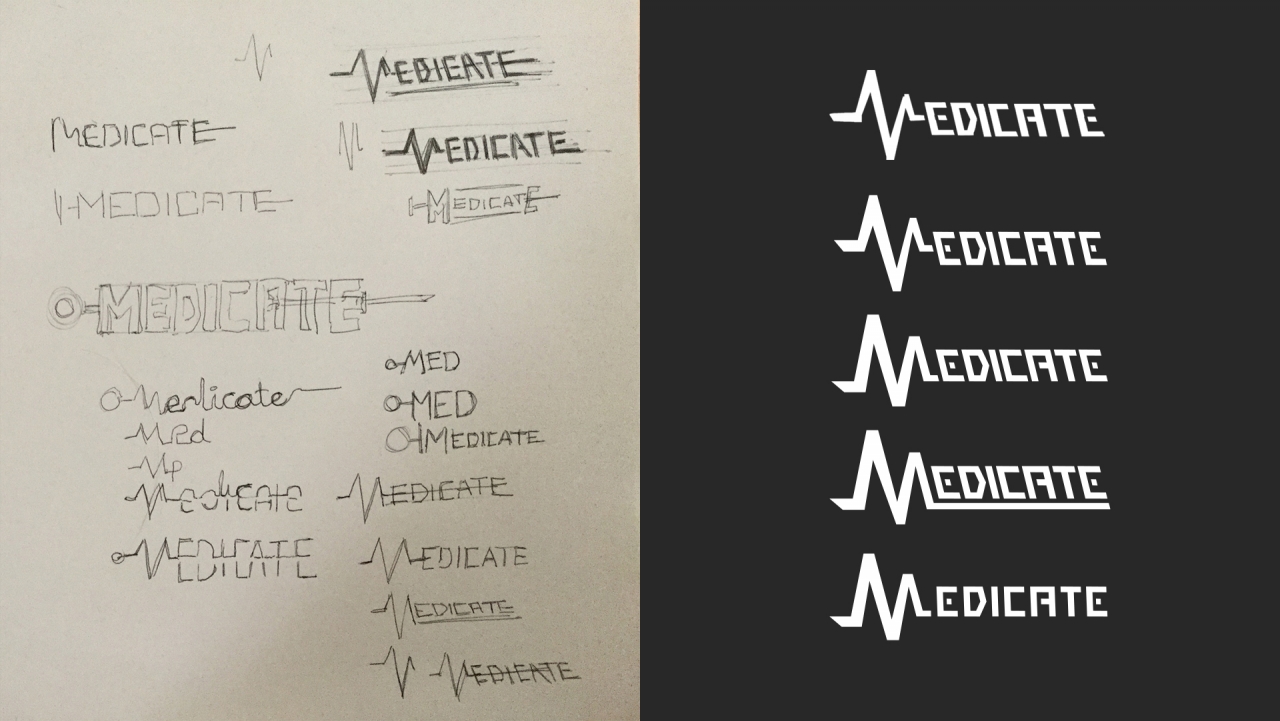 MEDICATE
MEDICATE
MEDICATE
MEDICATE
MEDICATE
MEDICATE
MED
Medicate
MED
Med
MEDICATE
MEDICATE
MEDICATE
MEDICATE
MEDICATE
MEDICATE
MEDICATE
MEDICATE
MEDICATE
MEDICATE
MEDICATE
MEDICATE
MEDICATE